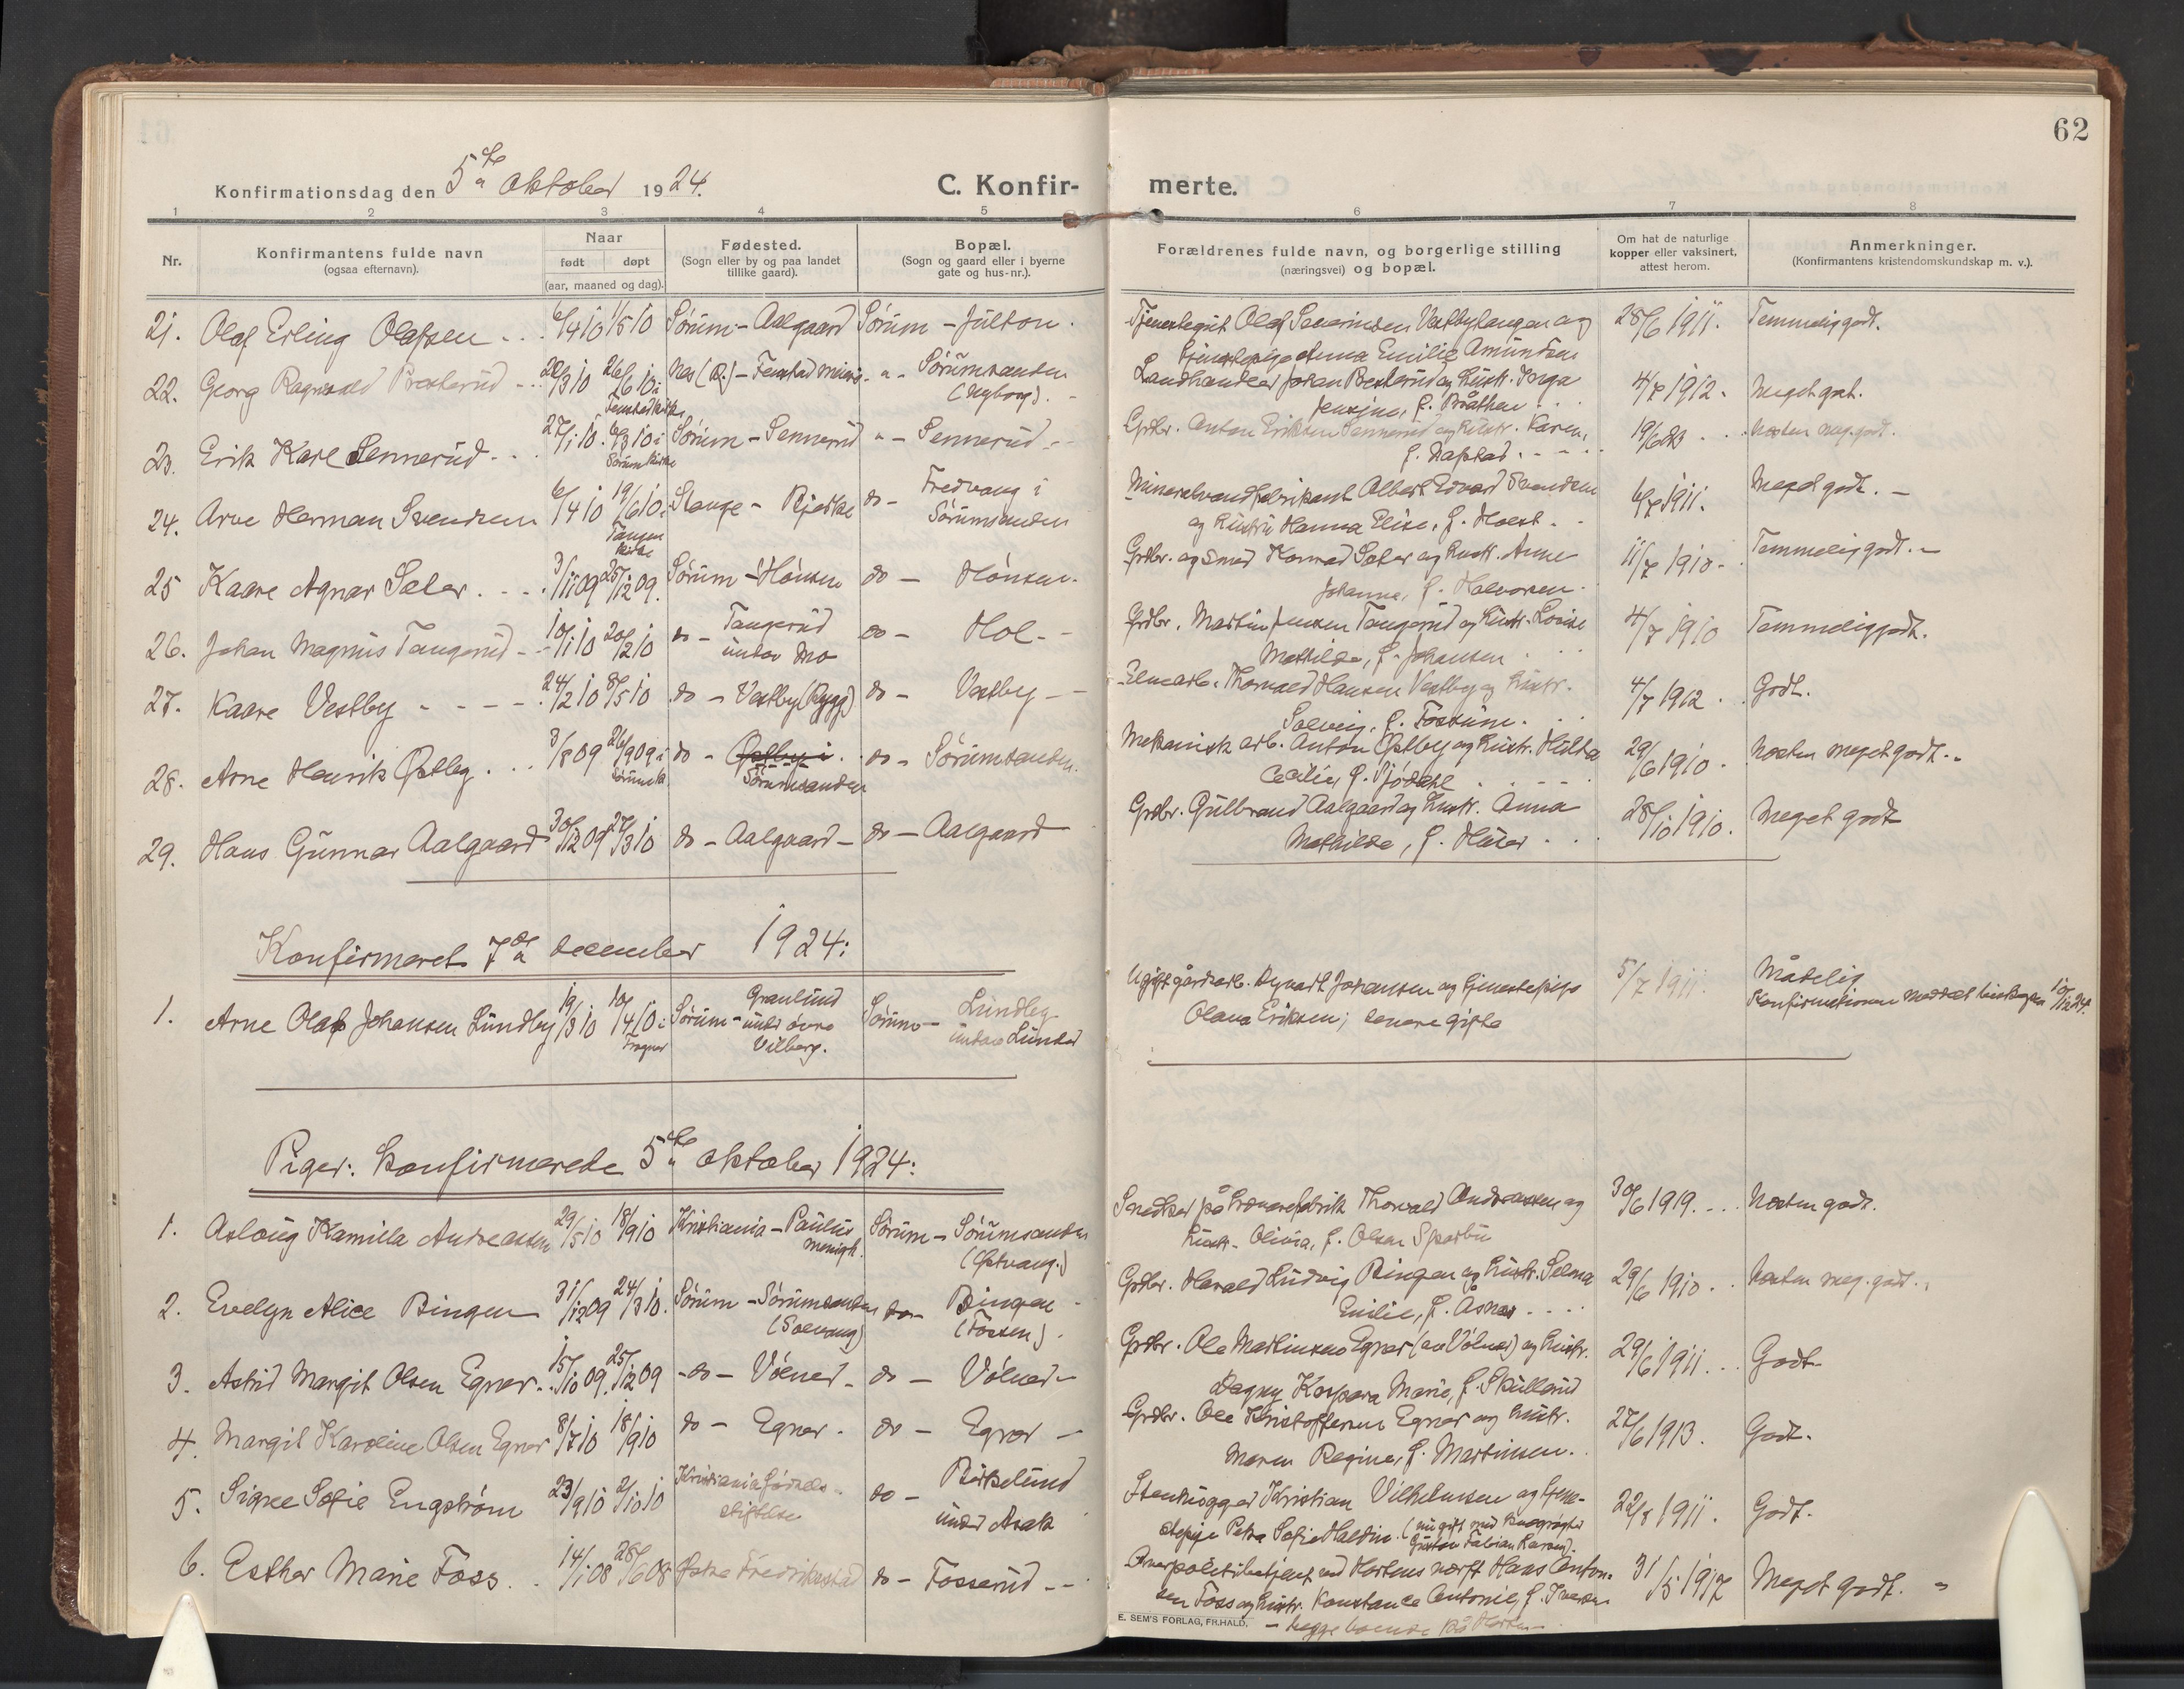 62
Konfirmationsdag den 5te oktober 1924.
C. Konfirmerte.
1 2 3 4 5 6 7 8
Nr.
Konfirmantens fulde navn
(ogsaa efternavn).
Naar
født døpt
(aar, maaned og dag).
Fødested.
(Sogn eller by og paa landet
tillike gaard).
Bopæl.
(Sogn og gaard eller i byerne
gate og hus-nr.).
Forældrenes fulde navn, og borgerlige stilling
(næringsvei) og bopæl.
Om hat de naturlige
kopper eller vaksinert,
attest herom.
Anmerkninger.
(Konfirmantens kristendomskundskap m. v.).
21. Olaf Erling Olafsen 6/4 10 1/5 10 Sørum - Aalgaard Sørum - Julton. Tjenestegut Olaf Severinsen Vestbytangen og 28/6 1911. Temmelig godt.
tjenestepige Anna Emilie Amundsen
22. Georg Ragnvald 22/3 10 26/6 10 i Nes (R.) - Fenstad - " - Sørumsanden Landhandler Johan og hustr. Inga 4/7 1912. Meget godt.
Fenstad kirke (Nyborg). Jensine, f. Bråthen
23. Erik Kare Sennerud 27/1 10. 6/3 10 i Sørum - Sennerud " - Sennerud - Grdbr. Anton Eriksen Sennerud og hustr. Karen, 19/6 23 Næsten meg. godt.
Sørum kirke f. Dafstad
24. Arne Herman Svendsen 6/4 10 19/6 10 i Stange - do - Fredvang i Mineralvandfabrikant Albert Edvard Svendsen 6/7 1911. Meget godt. -
Tangen kirke Sørumsanden og hustru Hanna Elise, f. Holst
25 Kaare Agnar Sæter 3/11 09 25/12 09. Sørum - Hønsen do - Hønsen. Grdbr. og smed Konrad Sæter og hustr. Anne 11/7 1910 - Temmelig godt. -
Johanne, f. Halvorsen
26. Johan Magnus Tangerud 10/1 10 20/2 10 do - Tangerud do - Hol - Grdbr. Martin Jensen Tangerud og hustr. Lovise 4/7 1910 Temmelig godt.
under Mo Mathilde, f. Johansen
27. Kaare Vestby 24/2 10 8/5 10 do - Vestby (Bygg) do - Vestby - Thorvald Hansen Vestby og hustr. 4/7 1912. Godt.
Solveig, f. Fossum.
28. Arne Henrik Østby 3/8 09 26/9 09 i do - Østby i do - Sørumsanden. Mekanisk arb. Anton Østby og hustr. Hulda 29/6 1910. Næsten meget godt.
Sørum k. Sørumsanden Cecilie, f. Sjødahl
29. Hans Gunnar Aalgaard 30/12 09 27/3 10 do - Aalgaard - do - Aalgaard Grdbr. Gulbrand Aalgaard og hustr. Anna 28/10 1910. Meget godt
Mathilde, f. Huser
Konfirmeret 7de december 1924:
1. Arne Olaf Johansen Lundby 19/3 10 10/4 10 i Sørum - Granlund Sørum - Lundby Ugift gårdsarb. Johansen og tjenestepige 5/7 1911. Mådelig
Frogner under øvre Vilberg. under Lunder Olava Eriksen; senere gifte Konfirmationen meddelt biskopen 10/12 24.
Piger: Konfirmerede 5te oktober 1924:
1. Aslaug Kamilla Andreassen 29/5 10 18/9 10 Kristiania - Paulus Sørum - Sørumsanden Snedker på trævarefabrik Thorvald Andreassen og 30/6 1919. Næsten godt.
menigh. (Østvang.) hustr. Olivia, f. Olsen Sparbu
2. Evelyn Alice Bingen 31/12 09 24/3 10. Sørum - Sørumsanden do - Bingen Grdbr. Harald Ludvig Bingen og hustr. Selma 29/6 1910. Næsten meg. godt.
(Solvang) (Fossen). Emilie, f. Åsnes
3. Astrid Margit Olsen Egner 15/10 09. 25/12 09 - do - Vølner - do - Vølner - Grdbr. Ole Martinsen Egner (av Vølner) og hustr. 29/6 1911. Godt
Dagny Kaspara Marie, f. Skullerud
4. Margit Karoline Olsen Egner 8/7 10 18/9 10 do - Egner - do - Egner - Grdbr. Ole Kristoffersen Egner og hustr. 27/6 1913. Godt.
Maren Regine, f. Martinsen.
5. Signe Sofie Engstrøm 23/9 10 2/10 10 Kristiania fødsels- do - Birkelund Stenhugger Kristian Vilhelmsen og tjene- 22/8 1911. Godt.
stiftelse under Asak stepige Petra Sofie (nu gift med
Gustav Fabian
6. Esther Marie Foss 14/1 08 28/6 08 Østre Fredrikstad do - Fosserud - politibetjent ved Hortens værft Hans Anton- 31/5 1917 Meget godt. -
sen Foss og hustr. Konstance Antonie, f. Iversen
E. SEM'S FORLAG, FR.HALD. - begge boende på Horten -